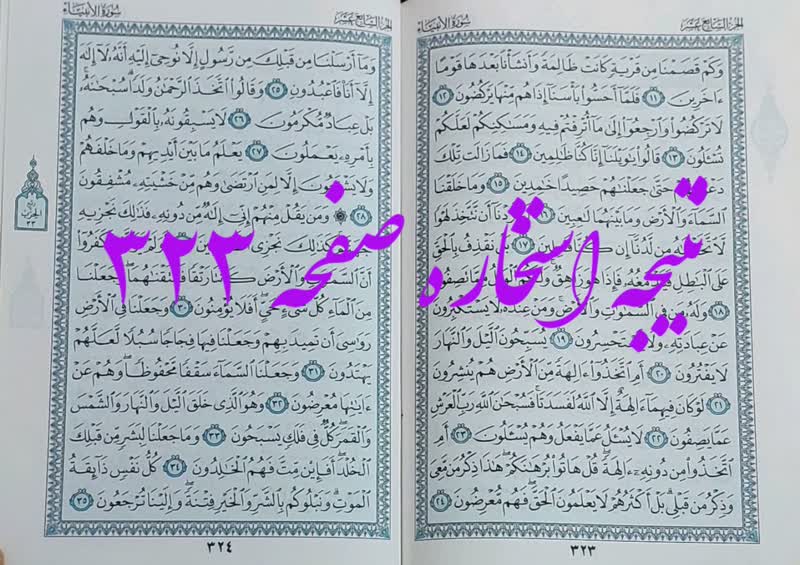 سُورَةُ الأَنبيَاء
الجزء السابع عشر
وَكَمْ قَصَمْنَا مِن قَرْيَةٍ كَانَتْ ظَالِمَةً وَأَنشَأْنَا بَعْدَهَا قَوْمًا
ءَاخَرِينَ ١١ فَلَمَّا أَحَسُّوا۟ بَأْسَنَا إِذَا هُم مِّنْهَا يَرْكُضُونَ ١٢
لَا تَرْكُضُوا۟ وَٱرْجِعُوٓا۟ إِلَىٰ مَآ أُتْرِفْتُمْ فِيهِ وَمَسَٰكِنِكُمْ لَعَلَّكُمْ
تُسْـَٔلُونَ ١٣ قَالُوا۟ يَٰوَيْلَنَآ إِنَّا كُنَّا ظَٰلِمِينَ ١٤ فَمَا زَالَت تِّلْكَ
حَتَّىٰ جَعَلْنَٰهُمْ حَصِيدًا خَٰمِدِينَ ١٥ وَمَا خَلَقْنَا
ٱلسَّمَآءَ وَٱلْأَرْضَ وَمَا بَيْنَهُمَا لَٰعِبِينَ ١٦ أَن نَّتَّخِذَ لَهْوًا
مِن لَّدُنَّآ إِن ١٧ نَقْذِفُ بِٱلْحَقِّ
عَلَى ٱلْبَٰطِلِ فَإِذَا هُوَ
١٨ وَلَهُۥ مَن فِى ٱلسَّمَٰوَٰتِ وَٱلْأَرْضِ وَمَنْ عِندَهُۥ لَا يَسْتَكْبِرُونَ
عَنْ عِبَادَتِهِۦ وَلَا يَسْتَحْسِرُونَ ١٩ يُسَبِّحُونَ ٱلَّيْلَ وَٱلنَّهَارَ
لَا يَفْتُرُونَ ٢٠ أَمِ ٱتَّخَذُوٓا۟ ءَالِهَةً مِّنَ ٱلْأَرْضِ هُمْ يُنشِرُونَ
٢١ لَوْ كَانَ فِيهِمَآ ءَالِهَةٌ إِلَّا ٱللَّهُ لَفَسَدَتَا فَسُبْحَٰنَ ٱللَّهِ رَبِّ ٱلْعَرْشِ
عَمَّا يَصِفُونَ ٢٢ لَا يُسْـَٔلُ عَمَّا يَفْعَلُ وَهُمْ يُسْـَٔلُونَ ٢٣ أَمِ
ٱتَّخَذُوا۟ مِن دُونِهِۦٓ ءَالِهَةً قُلْ هَاتُوا۟ بُرْهَٰنَكُمْ هَٰذَا ذِكْرُ مَن مَّعِىَ
وَذِكْرُ مَن قَبْلِى بَلْ أَكْثَرُهُمْ لَا يَعْلَمُونَ ٱلْحَقَّ فَهُم مُّعْرِضُونَ ٢٤
٣٢٣
سُورَةُ الأَنبيَاء
الجزء السابع عشر
وَمَآ أَرْسَلْنَا مِن قَبْلِكَ مِن رَّسُولٍ إِلَّا نُوحِىٓ إِلَيْهِ أَنَّهُۥ لَآ إِلَٰهَ
إِلَّآ أَنَا۠ فَٱعْبُدُونِ ٢٥ وَقَالُوا۟ ٱتَّخَذَ ٱلرَّحْمَٰنُ وَلَدًا سُبْحَٰنَهُۥ
بَلْ عِبَادٌ مُّكْرَمُونَ ٢٦ لَا يَسْبِقُونَهُۥ بِٱلْقَوْلِ وَهُم
بِأَمْرِهِۦ يَعْمَلُونَ ٢٧ يَعْلَمُ مَا بَيْنَ أَيْدِيهِمْ وَمَا خَلْفَهُمْ
وَلَا يَشْفَعُونَ إِلَّا لِمَنِ ٱرْتَضَىٰ وَهُم مِّنْ خَشْيَتِهِۦ مُشْفِقُونَ
٢٨ وَمَن يَقُلْ مِنْهُمْ إِنِّىٓ إِلَٰهٌ مِّن دُونِهِۦ فَذَٰلِكَ نَجْزِيهِ
كَذَٰلِكَ نَجْزِى كَفَرُوٓا۟
أَنَّ ٱلسَّمَٰوَٰتِ وَٱلْأَرْضَ كَانَتَا رَتْقًا فَفَتَقْنَٰهُمَا وَجَعَلْنَا
مِنَ ٱلْمَآءِ كُلَّ شَىْءٍ حَىٍّ أَفَلَا يُؤْمِنُونَ ٣٠ وَجَعَلْنَا فِى ٱلْأَرْضِ
رَوَٰسِىَ أَن تَمِيدَ بِهِمْ وَجَعَلْنَا فِيهَا فِجَاجًا سُبُلًا لَّعَلَّهُمْ
يَهْتَدُونَ ٣١ وَجَعَلْنَا ٱلسَّمَآءَ سَقْفًا مَّحْفُوظًا وَهُمْ عَنْ
ءَايَٰتِهَا مُعْرِضُونَ ٣٢ وَهُوَ ٱلَّذِى خَلَقَ ٱلَّيْلَ وَٱلنَّهَارَ وَٱلشَّمْسَ
وَٱلْقَمَرَ كُلٌّ فِى فَلَكٍ يَسْبَحُونَ ٣٣ وَمَا جَعَلْنَا لِبَشَرٍ مِّن قَبْلِكَ
ٱلْخُلْدَ أَفَإِي۟ن مِّتَّ فَهُمُ ٱلْخَٰلِدُونَ ٣٤ كُلُّ نَفْسٍ ذَآئِقَةُ
ٱلْمَوْتِ وَنَبْلُوكُم بِٱلشَّرِّ وَٱلْخَيْرِ فِتْنَةً وَإِلَيْنَا تُرْجَعُونَ ٣٥
٣٢٤
ربع
الحزب
٣٣
نتیجه استخاره صفحه ۳۲۳